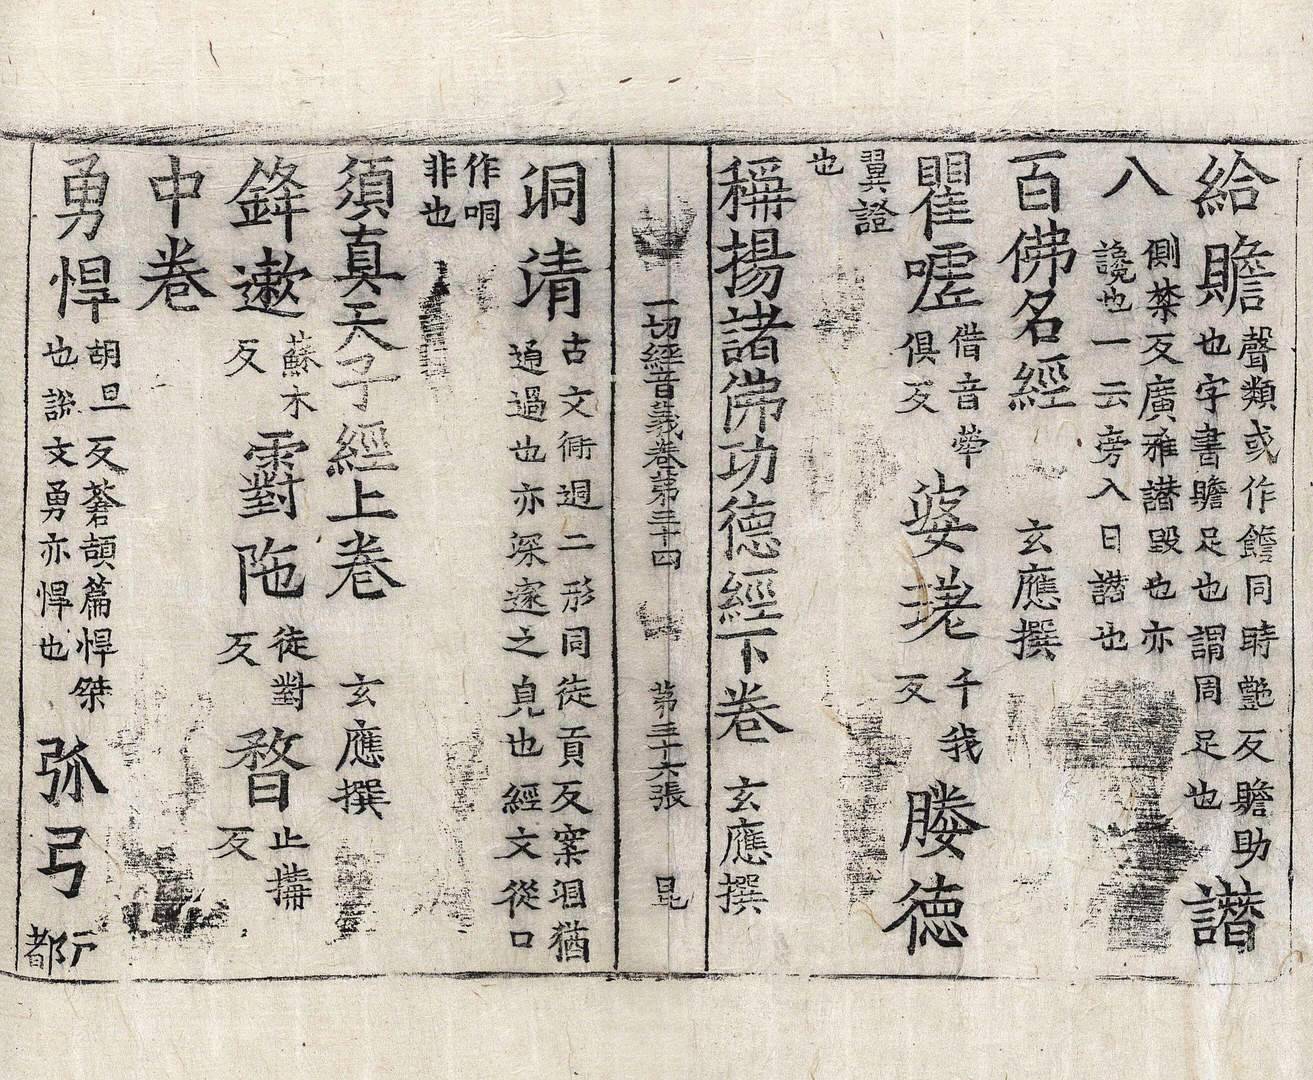 給贍聲類或作饍同時艷反贍助也字書贍足也謂周足也譖
八側禁反廣雅譖毀也亦讒也一云旁入曰譖也
百佛名經 玄應撰
瞿嘘借音犖俱反婆瑳千我反媵德
翼證也
稱揚諸佛功德經下卷 玄應撰
一切經音義卷第三十四 第三十六張 昆
洞清古文衕迵二形同徒貢反案洞猶通過也亦深邃之皃也經文從口
作哃非也
須真天子經上卷 玄應撰
鋒漱蘇木反䨴陁徒對反瞀止搆反
中卷
勇悍胡旦反蒼頡篇悍桀也說文勇亦悍也弥弓戶都